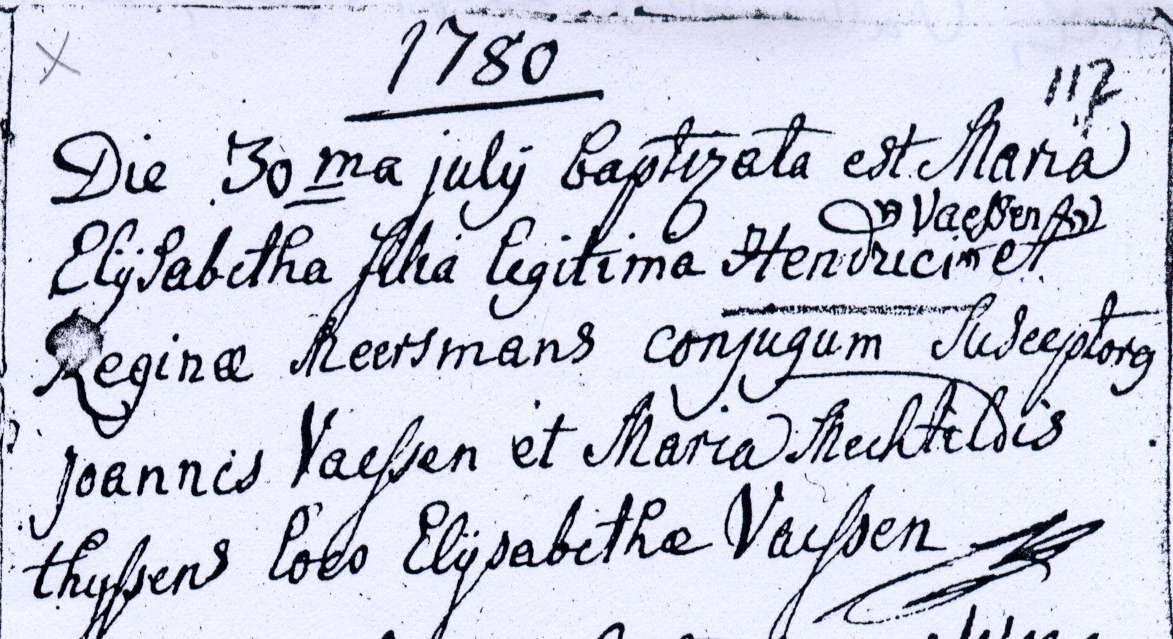 1780
117
Die 30ma julÿ baptizata est Maria
Vaessen
Elÿsabetha filia legitima Hendrici et
Reginæ Meersmans conjugum Susceptores
joannis Vaessen et Maria Mechtildis
thyssens loco Elÿsabethæ Vaessen